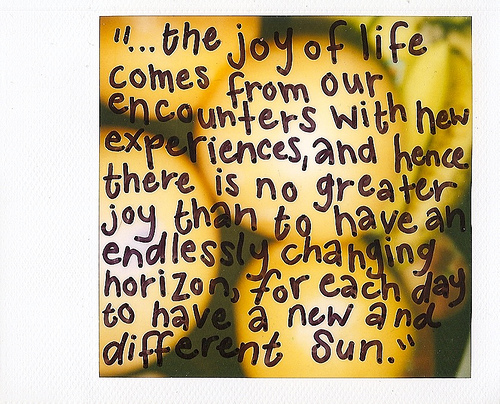 "...the joy of life
comes from our
encounters with new
experiences, and hence
there is no greater
joy than to have an
endlessly changing
horizon, for each day
to have a new and
different sun."